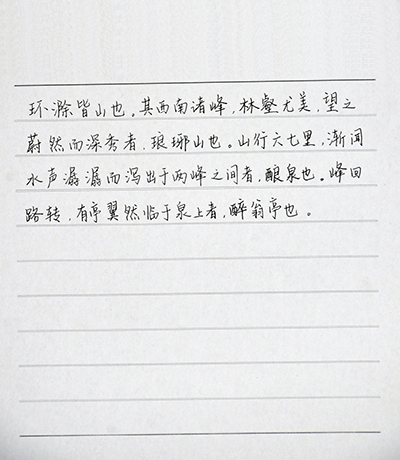 环滁皆山也。其西南诸峰，林壑尤美，望之
蔚然而深秀者，琅琊山也。山行六七里，渐闻
水声潺潺而泻出于两峰之间者，酿泉也。峰回
路转，有亭翼然临于泉上者，醉翁亭也。